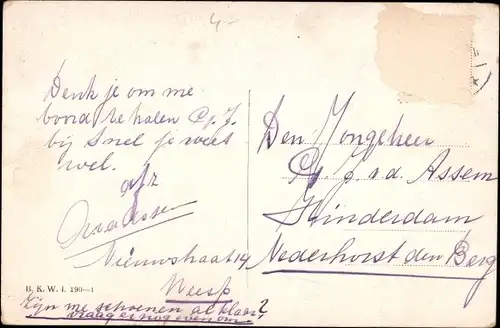 4-
Denk je om me
boord te halen Cs. J.
bij Snel je weet
wel.
afz
Nieuwstraat 19
Weesp
B. K. W. I. 190—1
Zijn me schoenen al klaar?
vraag er nog even om
Den Jongeheer
J. v. d. Assem
Hinderdam
Nederhorst den Berg